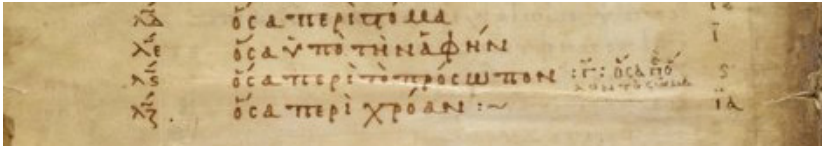 λδ ὅσα περὶ στόμα ιε
λε ὅσα ὑπὸ τὴν ἁφήν ϊ
λϛ ὅσα περὶ τὸ πρόσωπον :γ: ὅσα ϛ
λζ. ὅσα περὶ χρόαν :~ ϊα